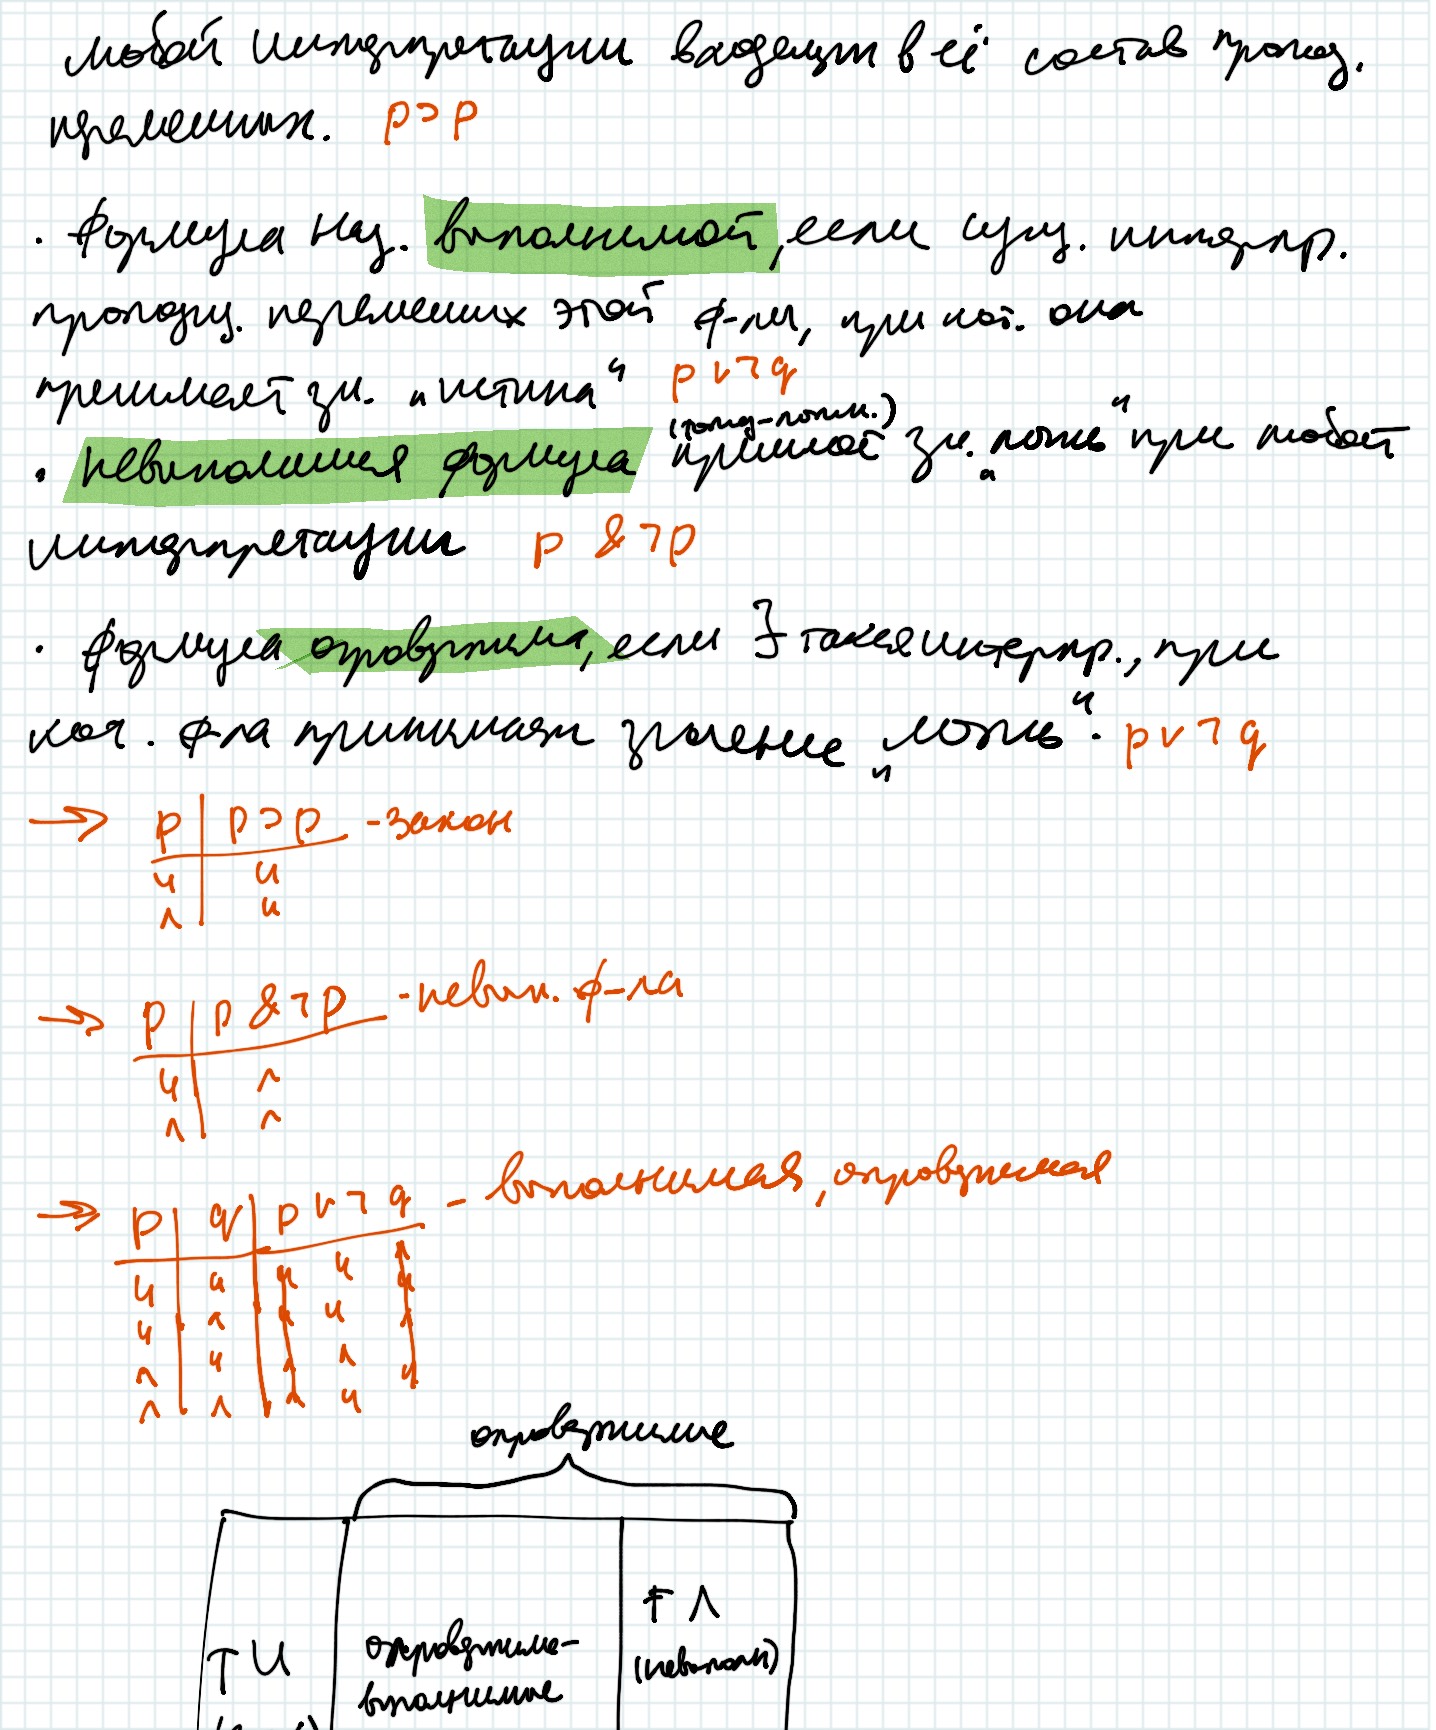 любой интерпретации входящих в её состав пропоз.
переменных. p⊃p
· Формула наз. выполнимой, если сущ. интерпр.
пропозиц. переменных этой ф-лы, при кот. она
принимает зн. „истина“ p∨¬q
(тожд-ложн.)
· невыполнимая формула принимает зн. „ложь“ при любой
интерпретации p & ¬p
· формула опровержима, если ∃ такая интерпр., при
кот. ф-ла принимает значение „ложь“. p∨¬q
→ p | p⊃p - закон
и и
л и
→ p | p & ¬p - невып. ф-ла
и л
л л
→ p | q | p ∨ ¬ q - выполнимая, опровержимая
и и и и л
и л и и
л и л л
л л л и и
опровержимые
ТИ
опровержимо-
выполнимые
ТЛ
(невыполн)